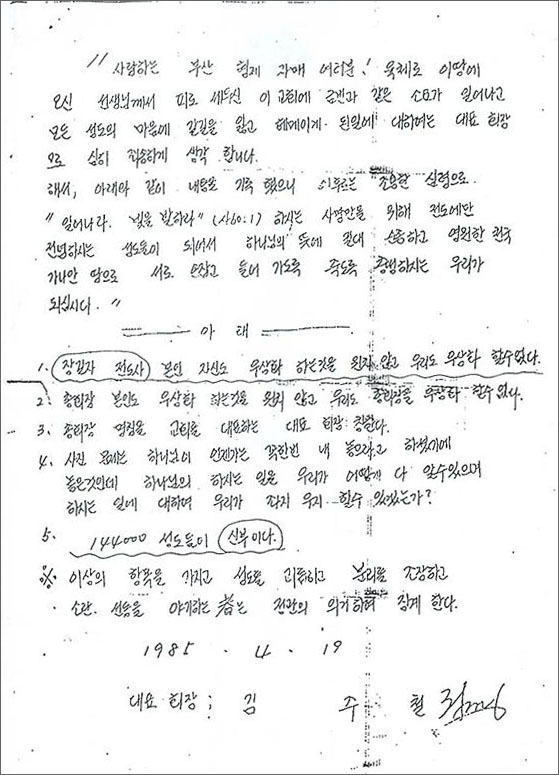 " 사랑하는 부산 형제 자매 여러분! 육체로 이땅에
오신 선생님께서 피로 세우신 이 교회에 금번과 같은 소요가 일어나고
모든 성도의 마음에 갈길을 잃고 헤메이게 된일에 대하여는 대표 회장
으로 심히 죄송하게 생각 합니다.
해서, 아래와 같이 내용을 기록 했으니 이후로는 조용한 심령으로
"일어나라. 빛을 발하라" (사60:1) 하시는 사명만을 위해 전도에만
전념하시는 성도들이 되어서 하나님의 뜻에 절대 순종하고 영원한 천국
가나안 땅으로 서로 손잡고 들어 가도록 죽도록 충성하시는 우리가
되십시다. "
아 래
1. 장길자 전도사 본인 자신도 우상화 하는것을 원치 않고 우리도 우상화 할수 없다.
2. 총회장 본인도 우상화 하는것을 원치 않고 우리도 총회장을 우상화 할수 없다.
3. 총회장 명칭을 교회를 대표하는 대표 회장 칭한다.
4. 사진 문제는 하나님이 언젠가는 꼭한번 내 놓으라고 하셨기에
놓은것인데 하나님의 하시는 일을 우리가 어떻게 다 알수있으며
하시는 일에 대하여 우리가 좌지 우지 할수 있겠는가?
5. 144000 성도들이 신부이다.
※ 이상의 항목을 가지고 성도를 괴롭히고 분리를 조장하고
소란. 선동을 야기하는 者는 정관의 의거하여 징계 한다.
1985 . 4 . 19
대표 회장 ; 김 주 철